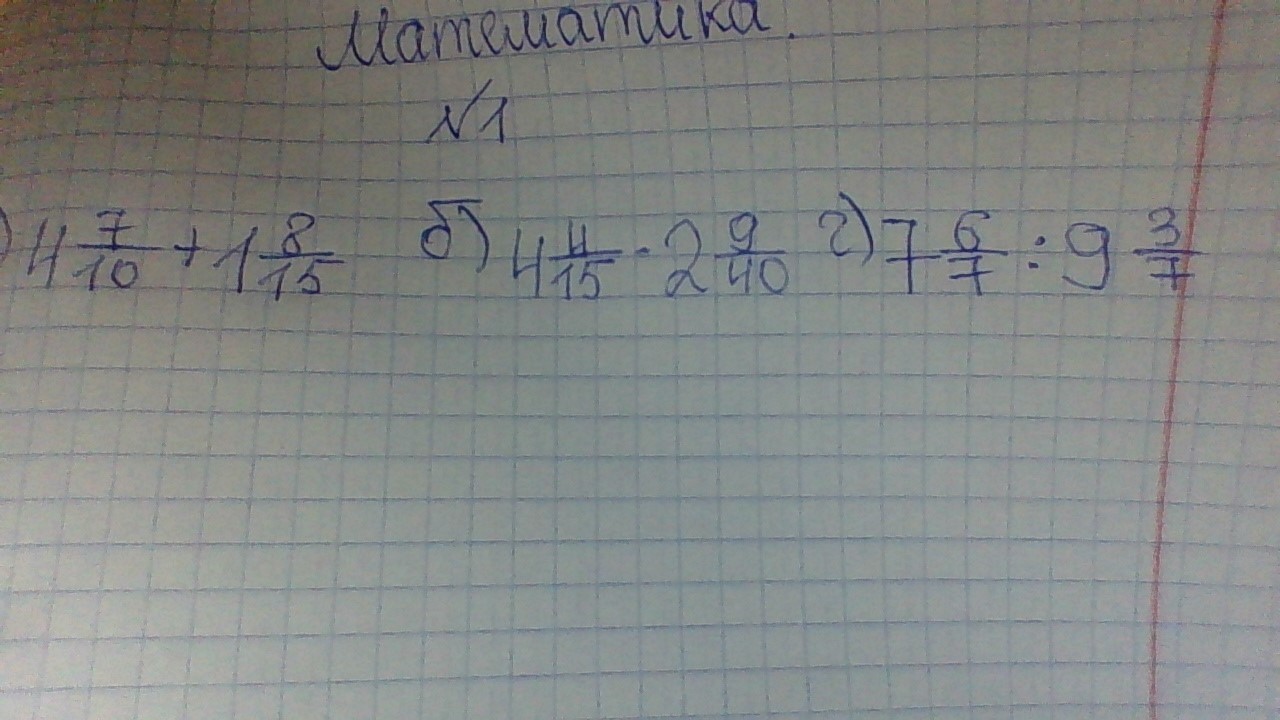 Математика.
№1
) 4 7/10 + 1 8/15 б) 4 4/15 - 2 9/40 г) 7 6/7 : 9 3/7